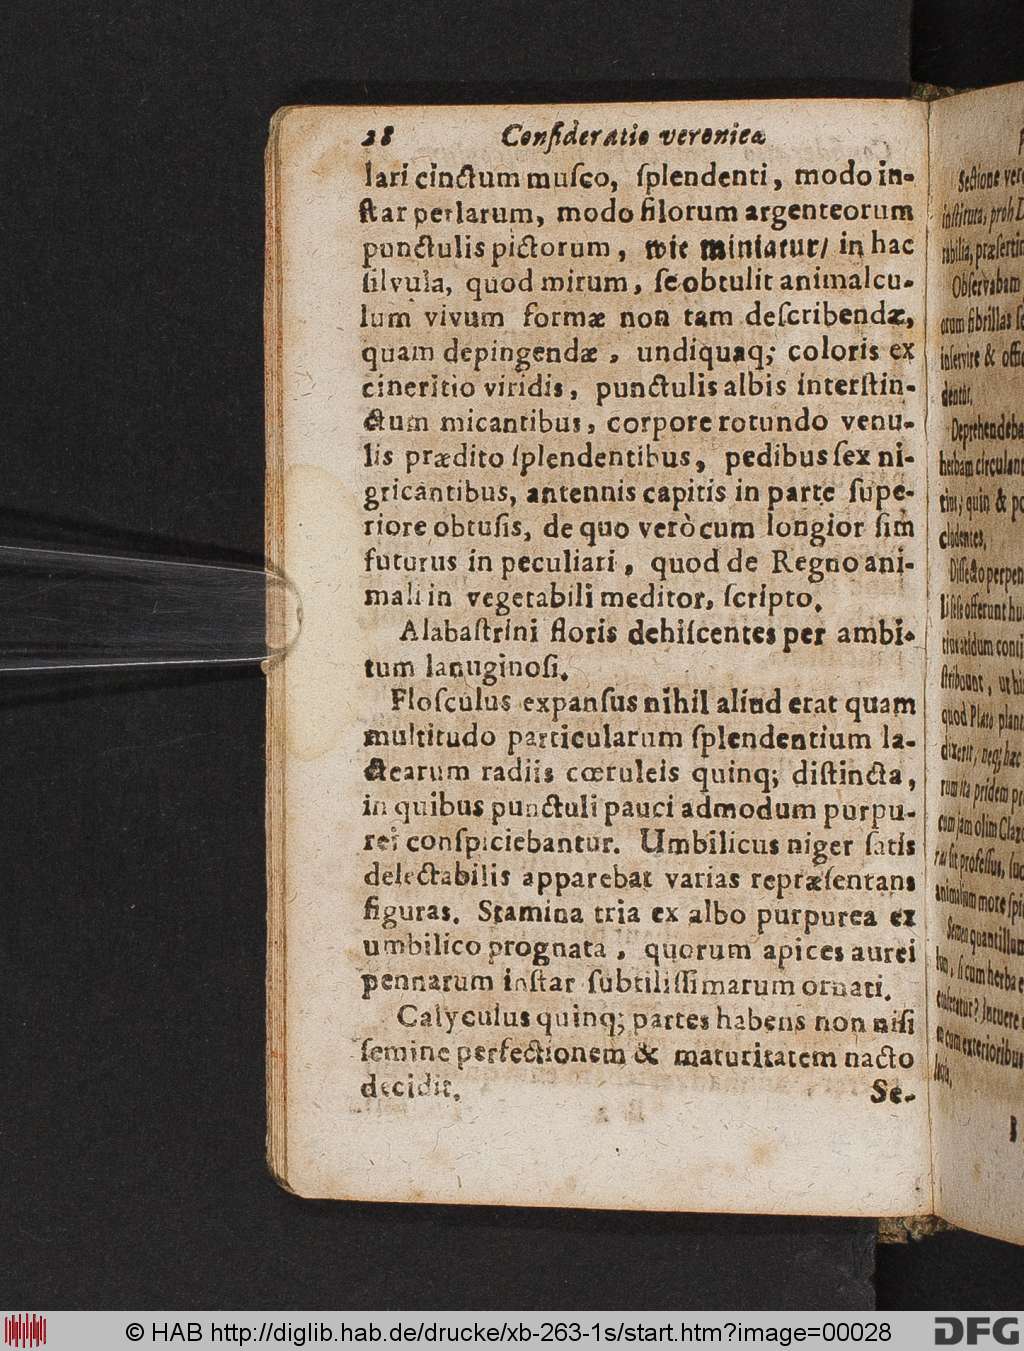 28 Conſideratio veronicæ
lari cinctum muſco, ſplendenti, modo in-
ſtar perlarum, modo filorum argenteorum
punctulis pictorum, wie miniatur/ in hac
ſilvula, quod mirum, ſe obtulit animalcu-
lum vivum formæ non tam deſcribendæ,
quam depingendæ, undiquaq; coloris ex
cineritio viridis, punctulis albis interſtin-
ctum micantibus, corpore rotundo venu-
lis prædito ſplendentibus, pedibus ſex ni-
gricantibus, antennis capitis in parte ſupe-
riore obtuſis, de quo verò cum longior ſim
futurus in peculiari, quod de Regno ani-
mali in vegetabili meditor, ſcripto.
Alabaſtrini floris dehiſcentes per ambi-
tum lanuginoſi.
Floſculus expanſus nihil aliud erat quam
multitudo particularum ſplendentium la-
ctearum radiis cœruleis quinq; diſtincta,
in quibus punctuli pauci admodum purpu-
rei conſpiciebantur. Umbilicus niger ſatis
delectabilis apparebat varias repræſentans
figuras. Stamina tria ex albo purpurea ex
umbilico prognata, quorum apices aurei
pennarum inſtar ſubtiliſſimarum ornati.
Calyculus quinq; partes habens non niſi
ſemine perfectionem & maturitatem nacto
decidit.
Se-
Sectione
inſtituta, proh
Obſervabam
orum fibrillas
inſervire &
dentur.
herbam
tim; quin &
cludentes.
liſeſe offerunt
ſtribuunt,
quod Plato
dixerit, neq; hac
rum ita pridem
cum jam olim
ras ſit profeſſus,
animalium more
Semen quantillum
ſi cum herba
Intuere
cum exterioribus
© HAB http://diglib.hab.de/drucke/xb-263-1s/start.htm?image=00028
DFG